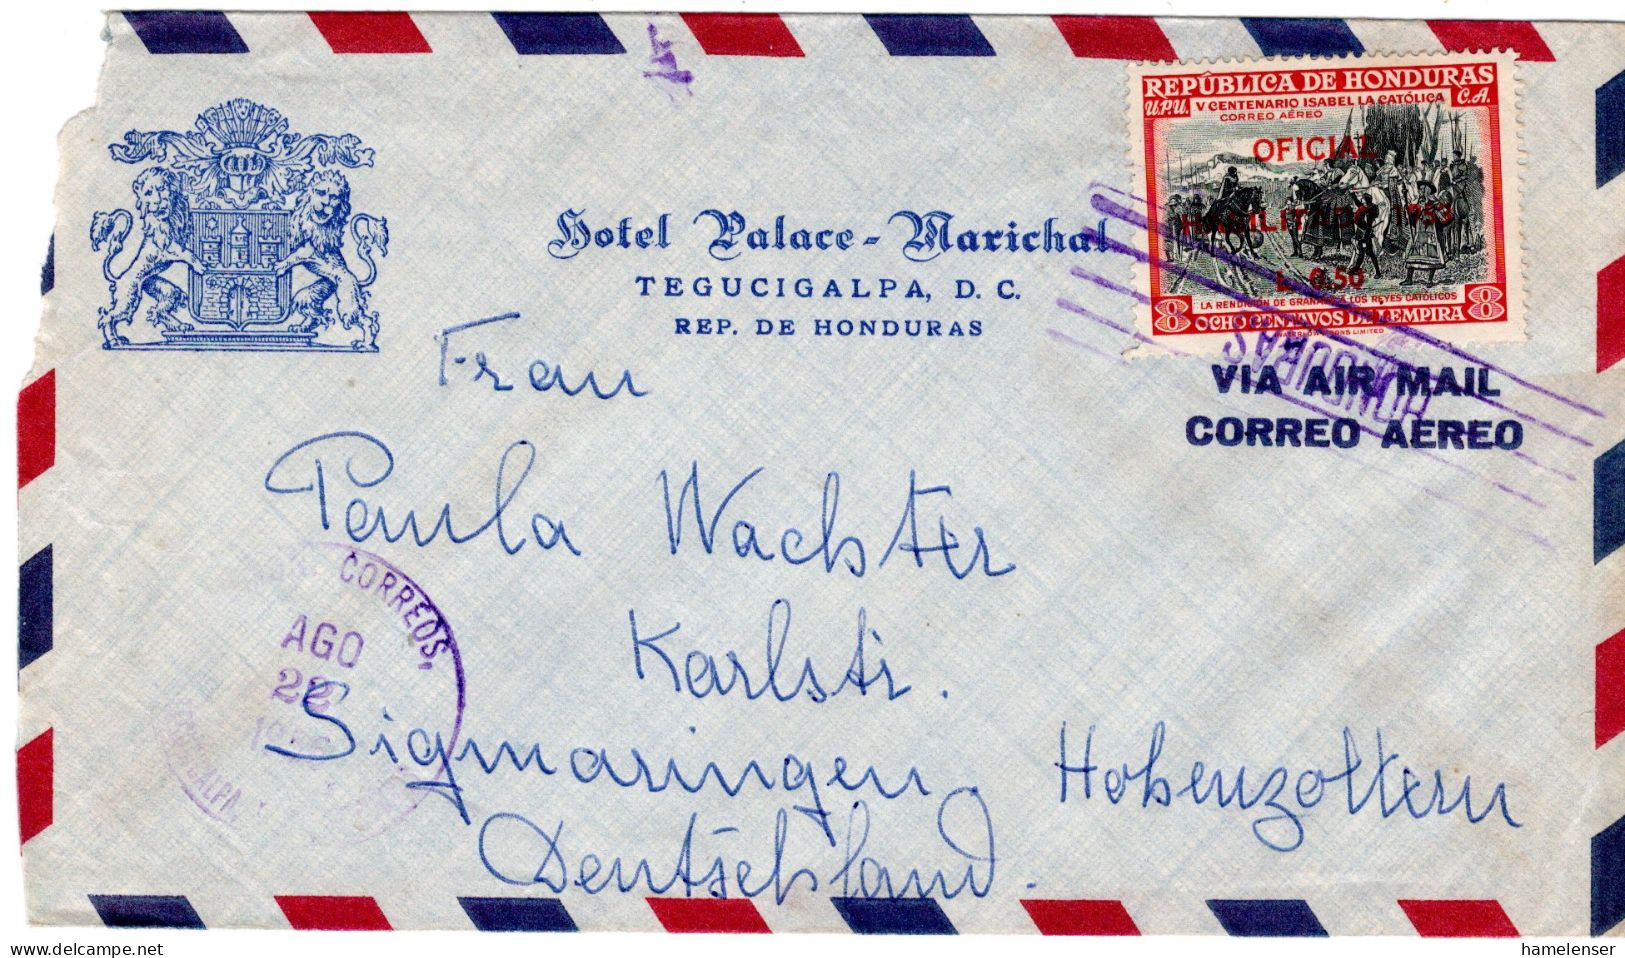 REPÚBLICA DE HONDURAS
U.P.U. V CENTENARIO ISABEL LA CATÓLICA C.A.
CORREO AÉREO
OFICIAL
HABILITADO 1953
L 0.50
LA RENDICIÓN DE GRANADA A LOS REYES CATÓLICOS
8 OCHO CENTAVOS DE LEMPIRA 8
HONDURAS
Hotel Palace-Marichal
TEGUCIGALPA, D. C.
REP. DE HONDURAS
VIA AIR MAIL
CORREO AEREO
Frau
Paula Wachter
Karlstr.
Sigmaringen. Hohenzollern
Deutschland.
CORREOS,
AGO
22
hamelenser